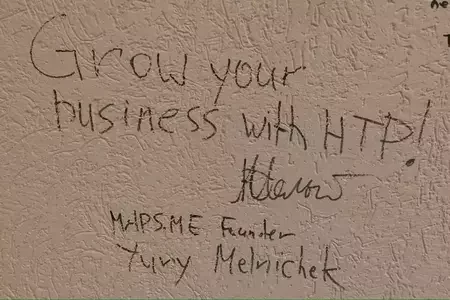 Grow your
business with HTP!
MAPS.ME Founder
Yury Melnichek